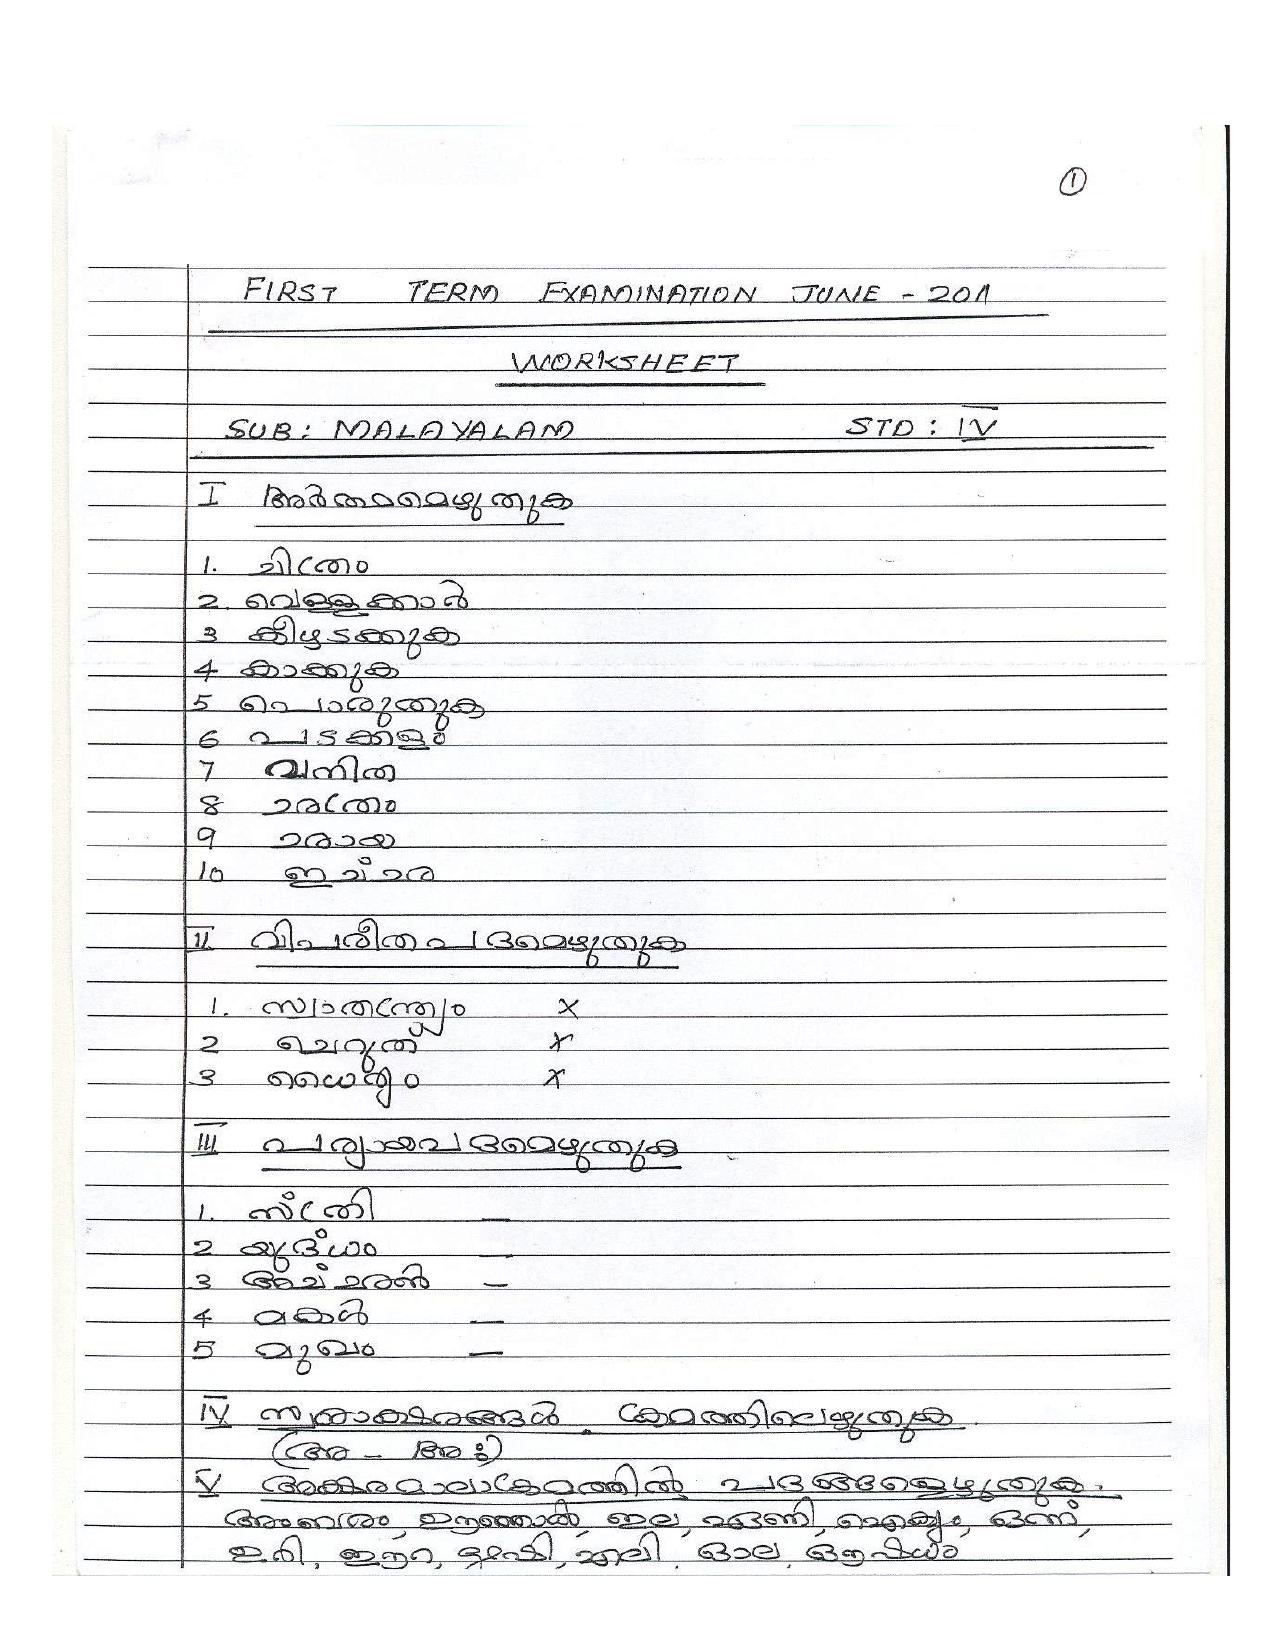 ①
FIRST TERM EXAMINATION JUNE - 2011
WORKSHEET
SUB: MALAYALAM STD: IV
I അർത്ഥമെഴുതുക
1. ചിത്രം
2. വെള്ളക്കാർ
3 കീഴടക്കുക
4 കാക്കുക
5 പൊരുതുക
6 പടക്കളം
7 വനിത
8
9
10
II വിപരീതപദമെഴുതുക
1. സ്വാതന്ത്ര്യം ×
2 ചെറുത് ×
3 ധൈര്യം ×
III പര്യായപദമെഴുതുക
1. സ്ത്രീ —
2 യുദ്ധം —
3 അച്ഛൻ —
4 മകൾ —
5 മുഖം —
IV സ്വരാക്ഷരങ്ങൾ ക്രമത്തിലെഴുതുക
(അ - അഃ)
V അക്ഷരമാലാക്രമത്തിൽ പദങ്ങളെഴുതുക.
അംബരം, ഊഞ്ഞാൽ, ഇല, ഐക്യം, ഒന്ന്,
ഈറ, ഋഷി, എലി, ഓല, ഔഷധം